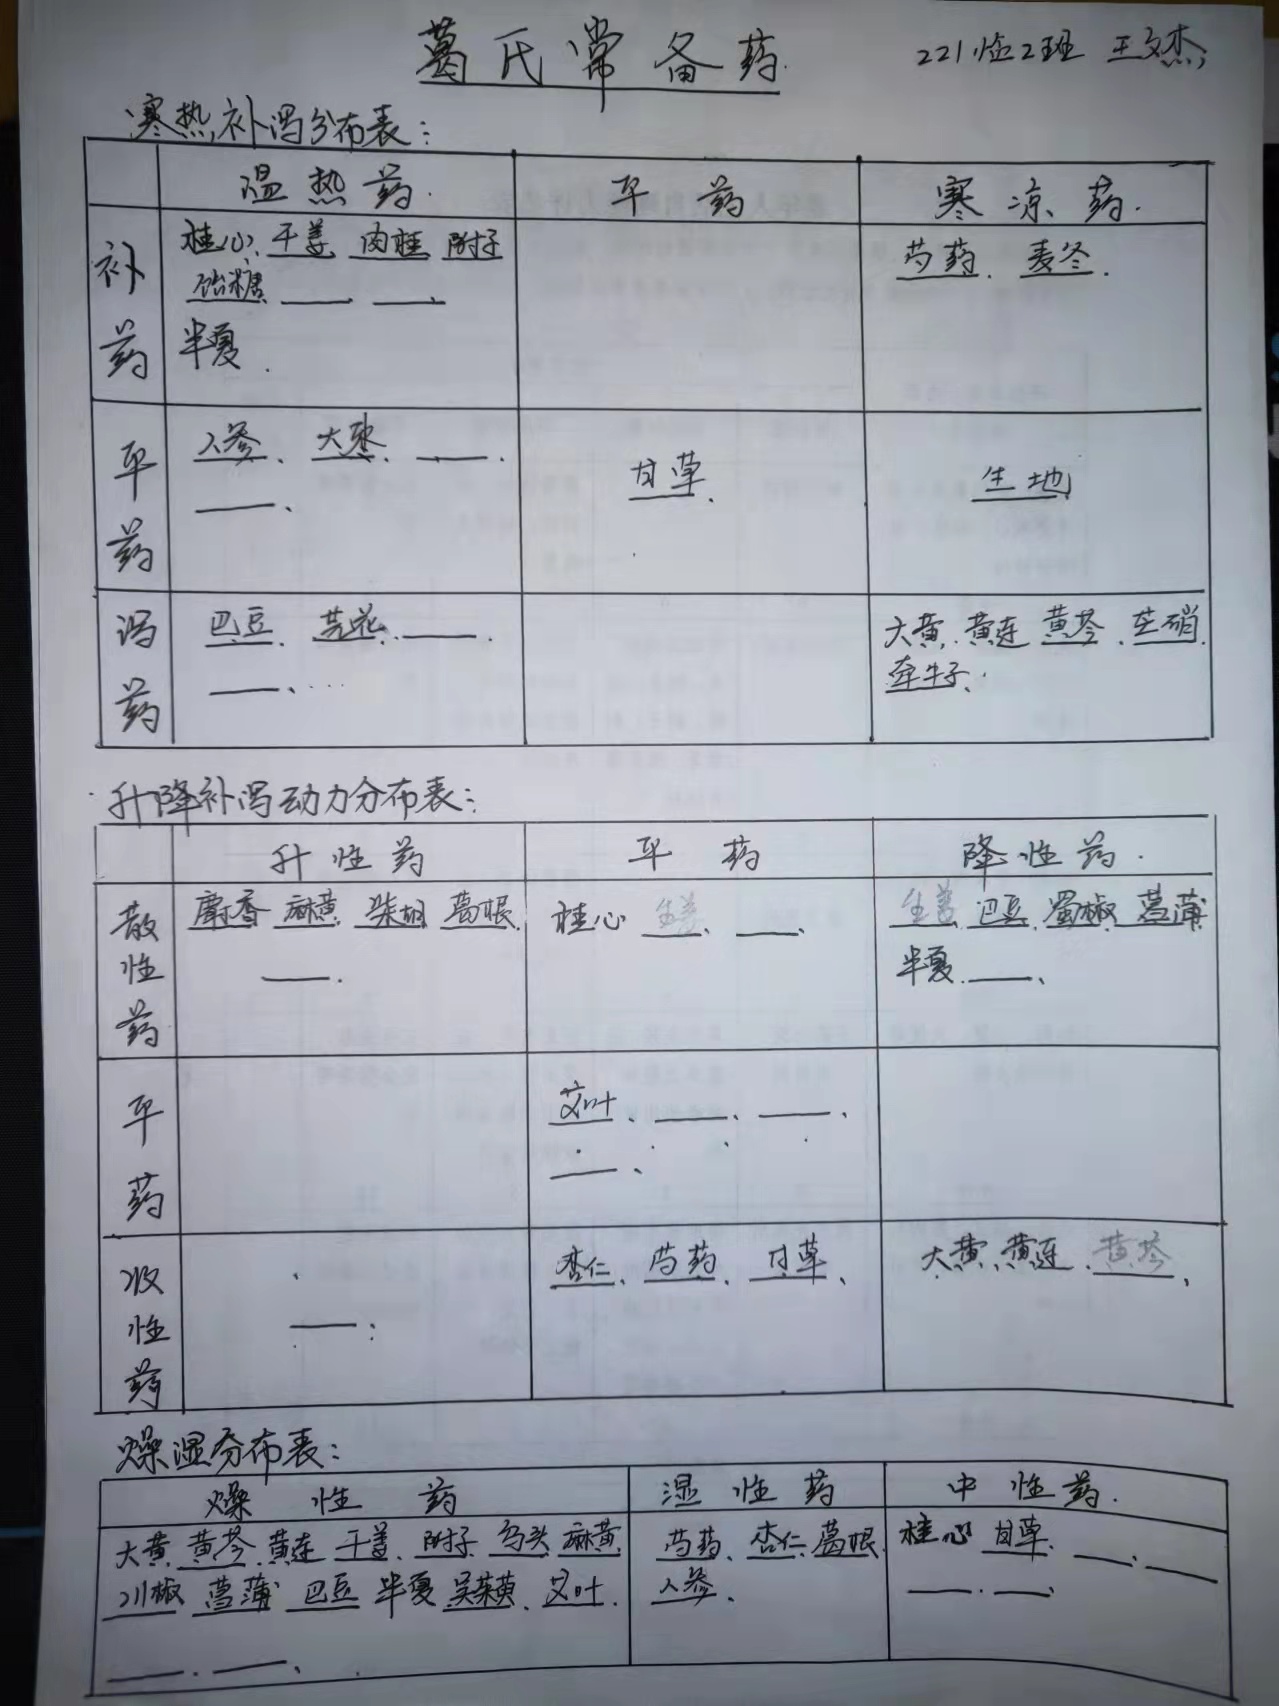 葛氏常备药.
221临2班 王文杰
寒热补泻分布表:
温热药. 平药 寒凉药.
补药
桂心、干姜 肉桂 附子
饴糖
半夏.
芍药. 麦冬.
平药
人参、大枣、
甘草.
生地
泻药
巴豆、芫花.
大黄. 黄连 黄芩. 芒硝.
牵牛子.
升降补泻动力分布表:
升性药 平药 降性药.
散性药
麝香 麻黄 柴胡 葛根.
桂心 生姜、
生姜 巴豆 蜀椒 菖蒲
半夏.
平药
艾叶、
收性药
杏仁、芍药、甘草、
大黄 黄连 黄芩、
燥湿分布表:
燥性药 湿性药 中性药.
大黄 黄芩 黄连 干姜、附子 乌头 麻黄
川椒 菖蒲 巴豆 半夏 吴茱萸、艾叶.
芍药、杏仁 葛根.
人参、
桂心 甘草.